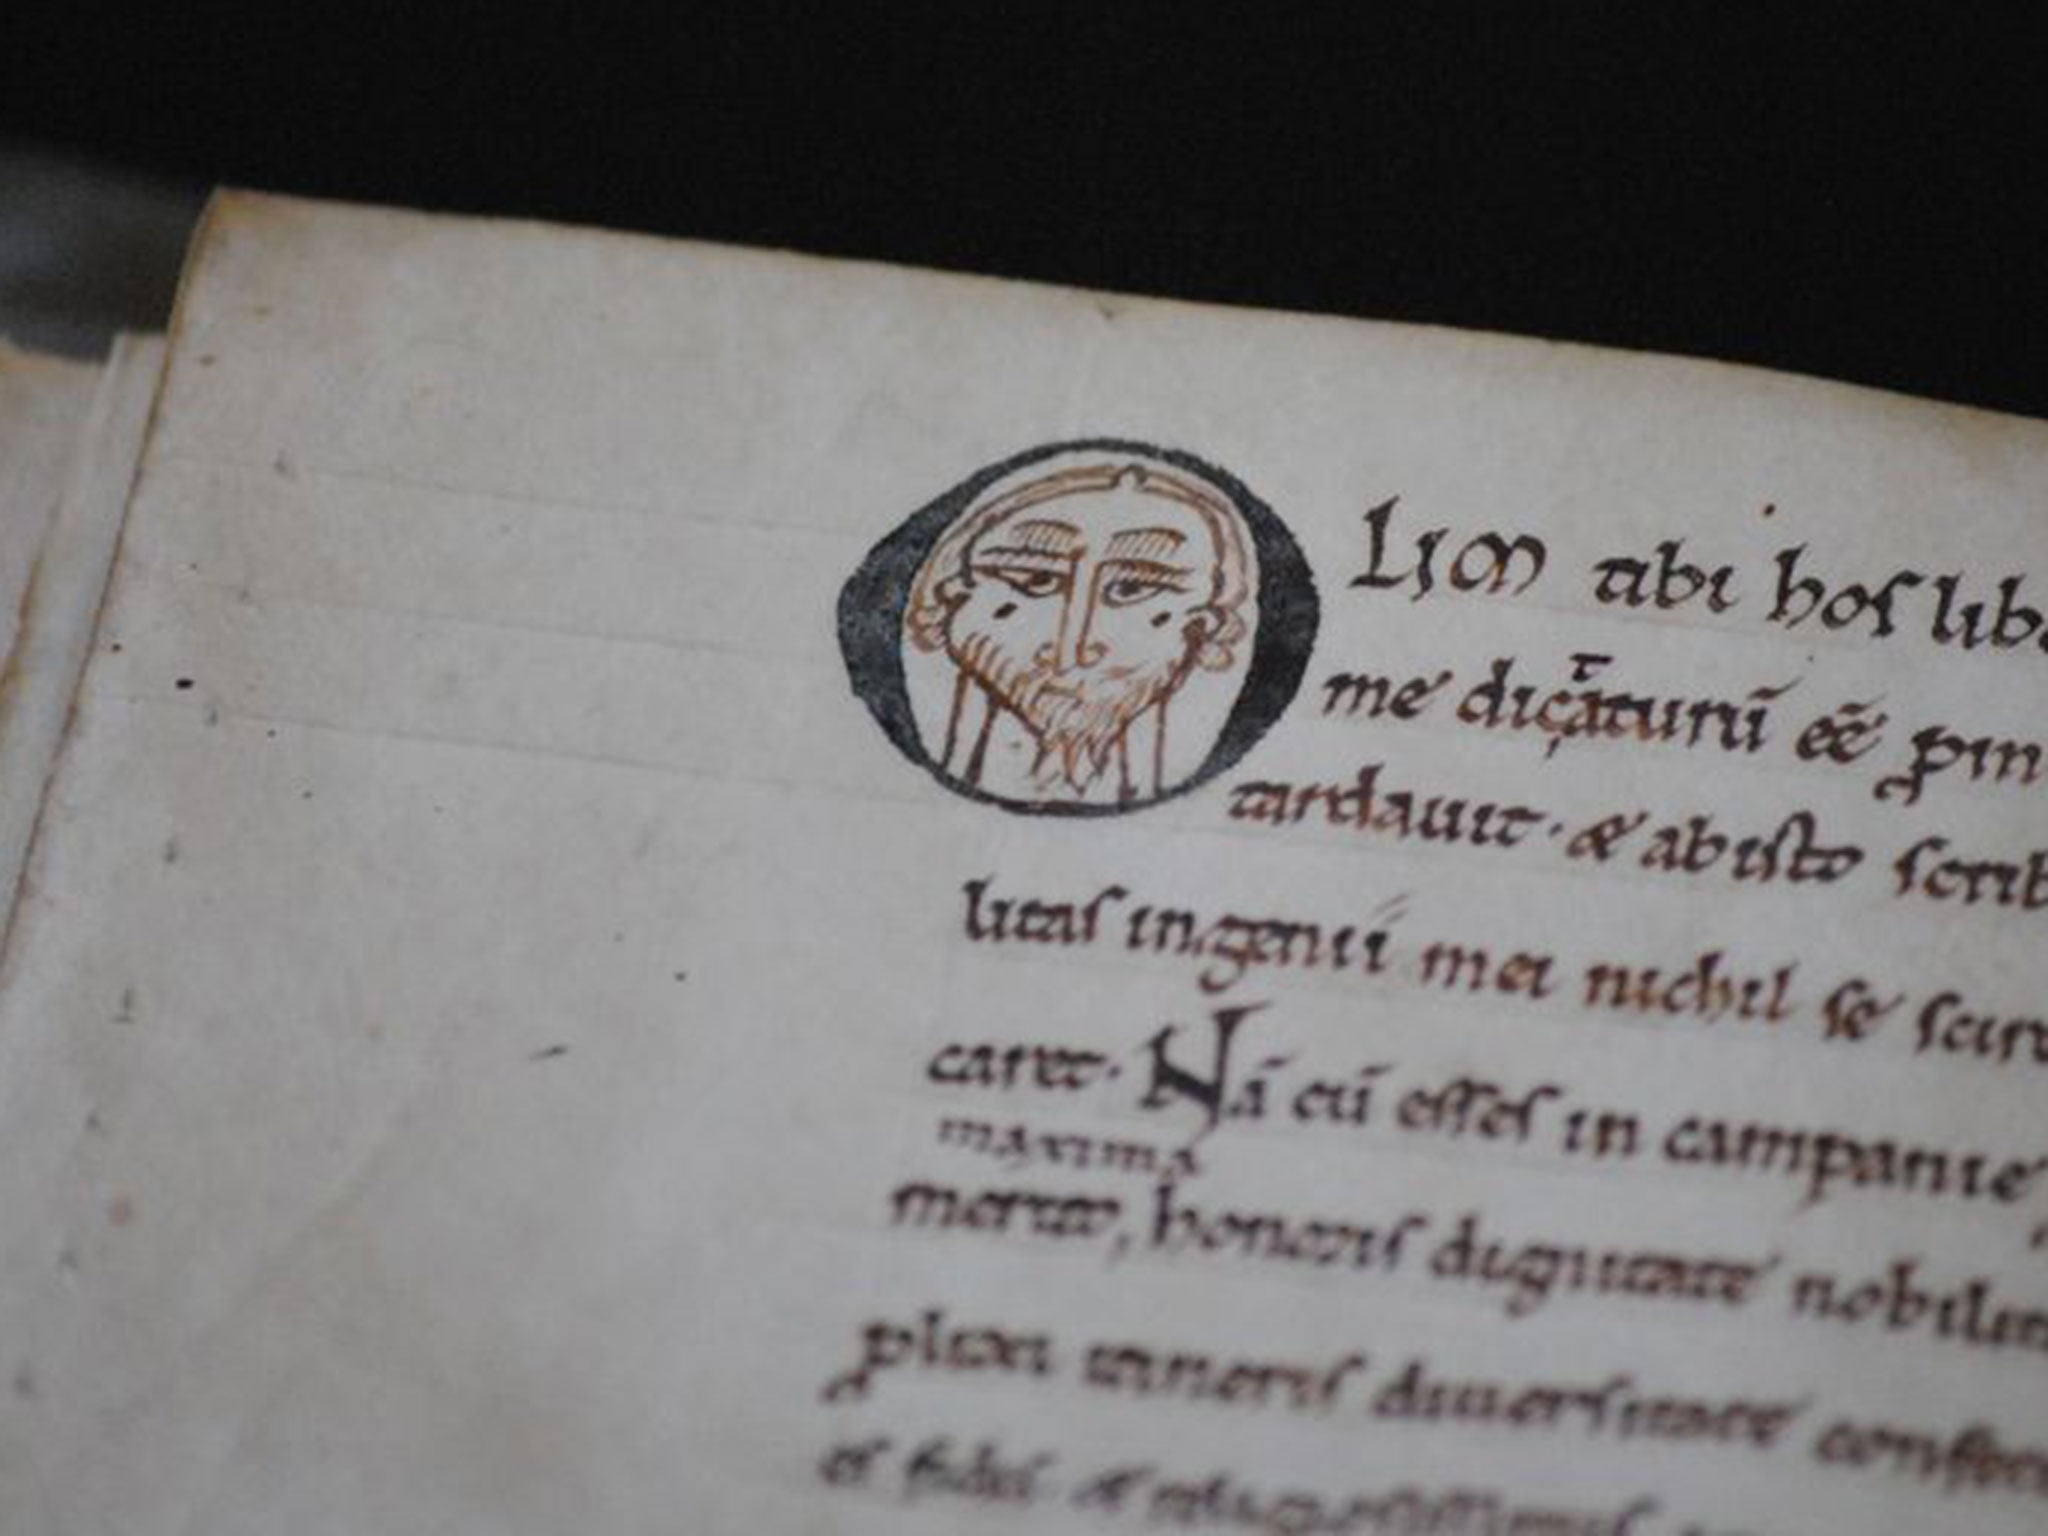 OLIM tibi hos lib
me dicaturū eē pin
tardauit · & ab isto scrib
litas ingenii mei nichil se scire
caret · Nā cū esses in campanie
maxima
honoris dignitate nobilem
generis diuersitate